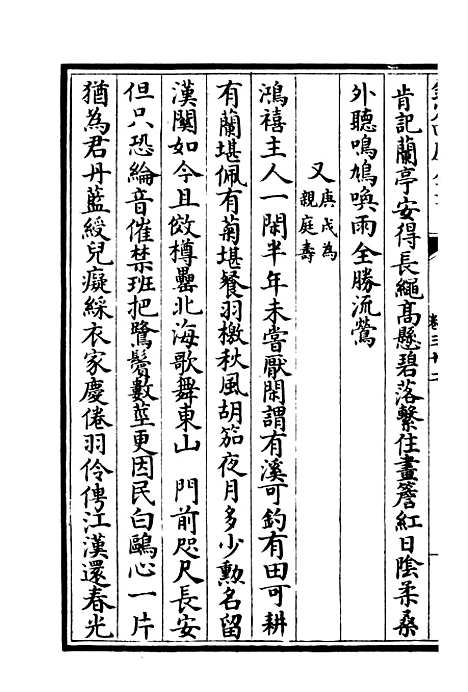 肯記蘭亭安得長繩髙懸碧落繫住畫簷紅日陰柔桑
外聽鳴鳩喚雨全勝流鶯
又庚戌為
親庭壽
鴻禧主人一閑半年未嘗厭閑謂有溪可釣有田可耕
有蘭堪佩有菊堪餐羽檄秋風胡笳夜月多少勲名留
漢闗如今且倣樽罍北海歌舞東山　門前咫尺長安
但只恐綸音催禁班把鷺鬢數莖更因民白鷗心一片
猶為君丹藍綬兒癡綵衣家慶倦羽伶俜江漢還春光